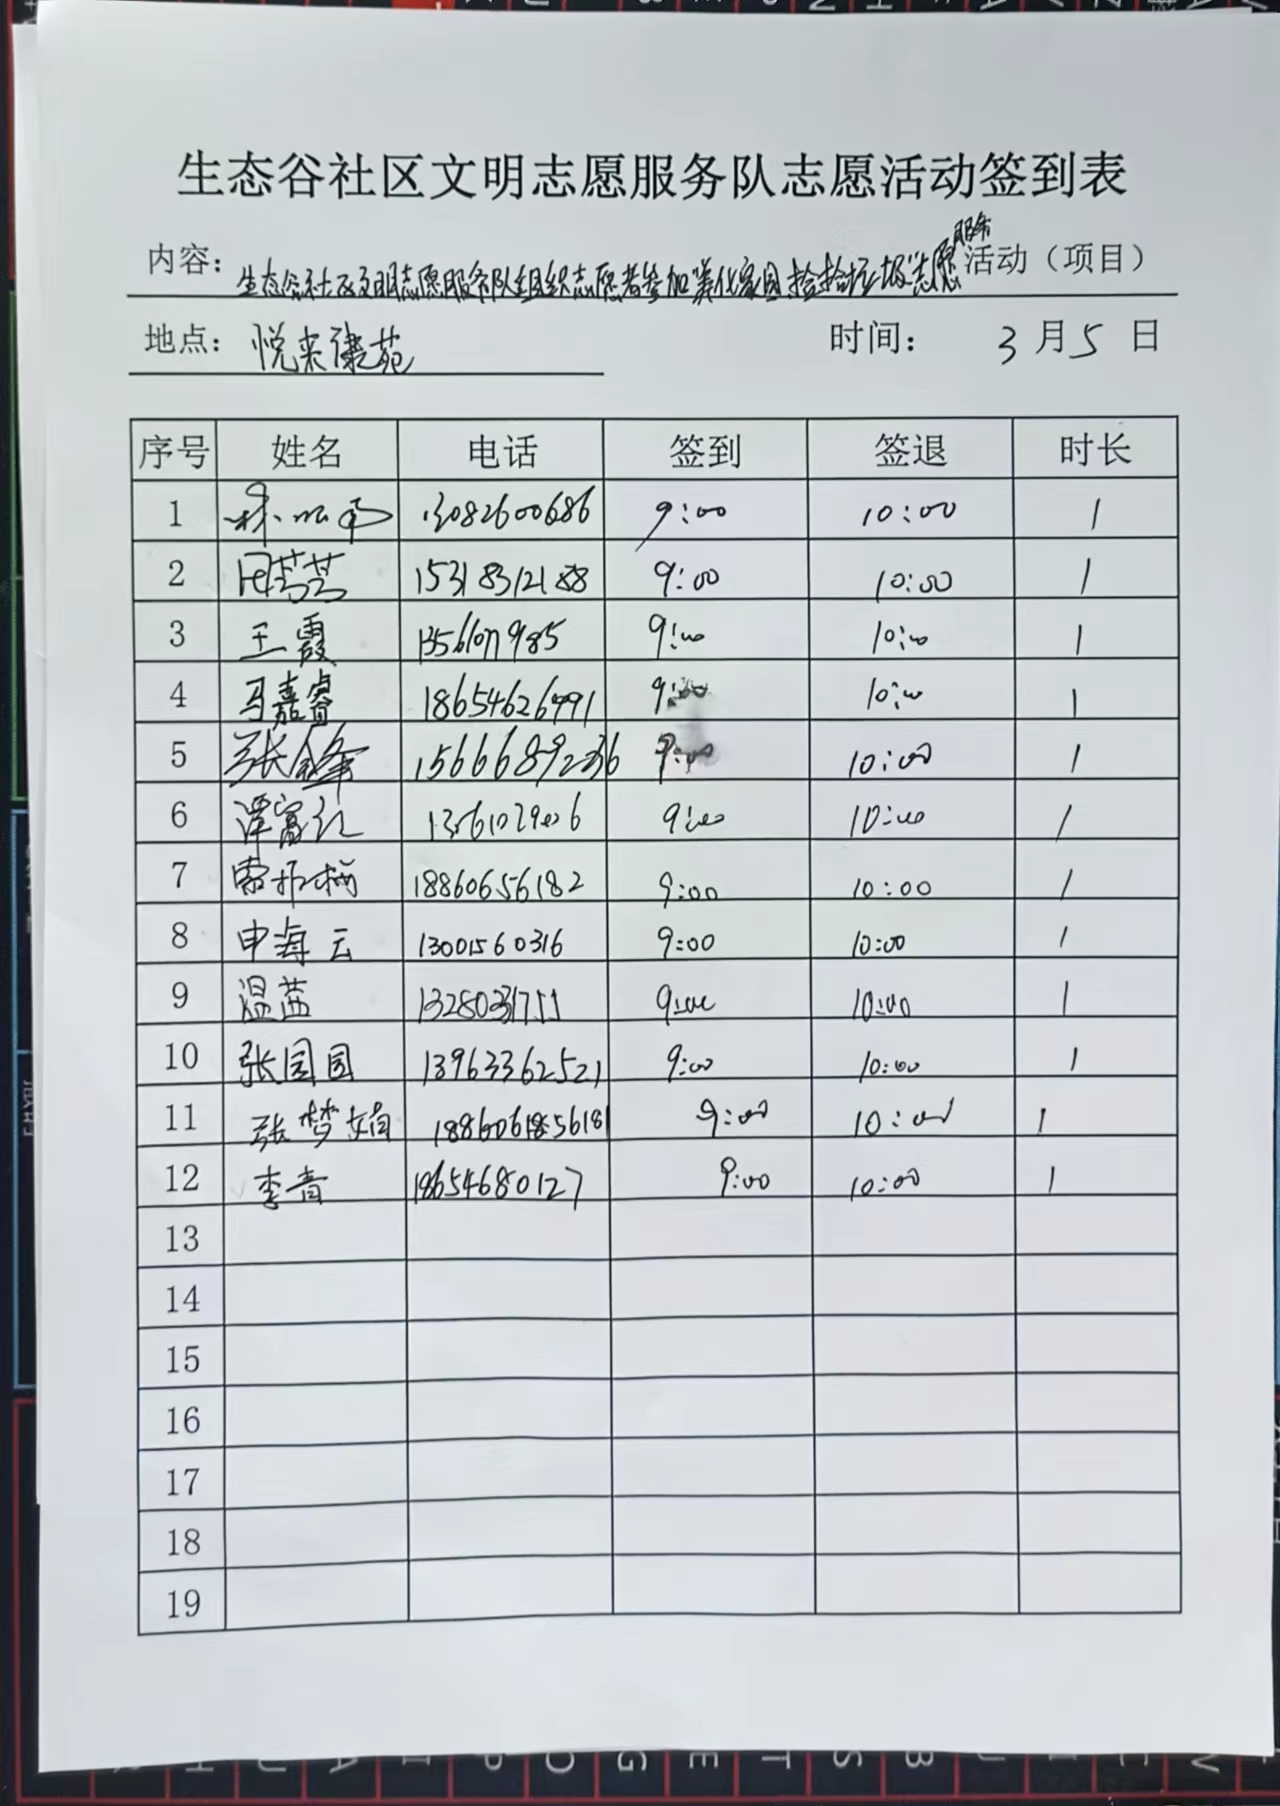 生态谷社区文明志愿服务队志愿活动签到表
内容：生态谷社区文明志愿服务队组织志愿者参加美化家园捡拾垃圾志愿服务活动（项目）
地点：悦来康苑 时间： 3月5日
序号 姓名 电话 签到 签退 时长
1 13082600686 9:00 10:00 1
2 周芸芸 15318312188 9:00 10:00 1
3 王霞 9:00 10:00 1
4 马嘉睿 18654626991 9:00 10:00 1
5 张金峰 15666892236 9:00 10:00 1
6 谭富红 9:00 10:00 1
7 18860656182 9:00 10:00 1
8 申海云 13001560316 9:00 10:00 1
9 温蓝 9:00 10:00 1
10 张园园 13963362521 9:00 10:00 1
11 张梦娟 9:00 10:00 1
12 李青 18654680127 9:00 10:00 1
13
14
15
16
17
18
19